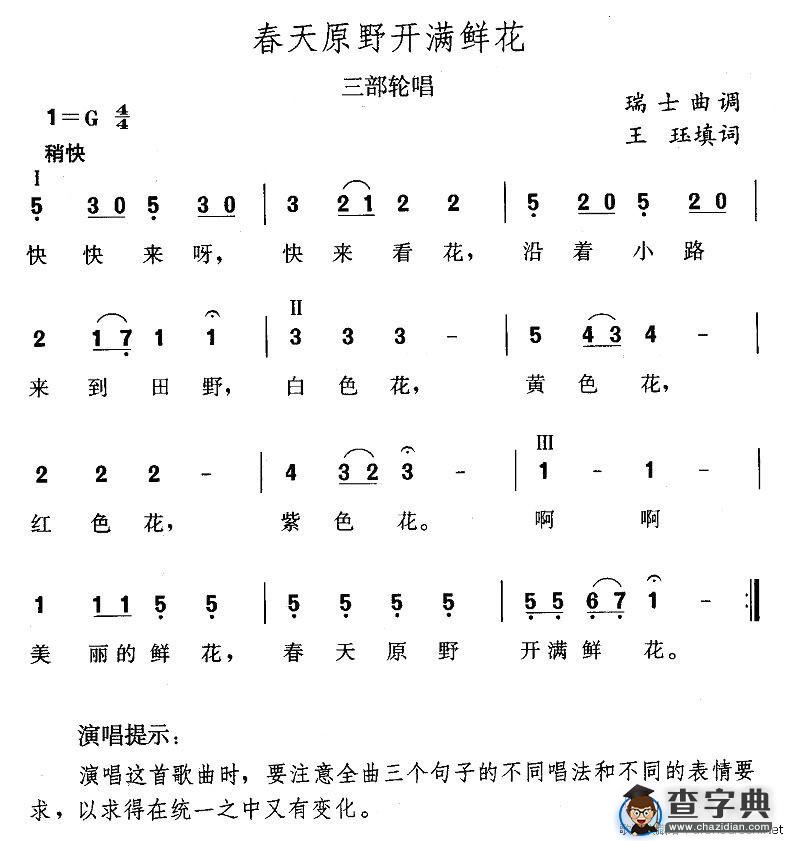 春天原野开满鲜花
三部轮唱
1=G 4/4
瑞士曲调
王 珏填词
稍快
I
5 3 0 5 3 0 | 3 2 1 2 2 | 5 2 0 5 2 0 |
快 快 来 呀, 快 来 看 花, 沿 着 小 路
II
2 1 7 1 1 | 3 3 3 - | 5 4 3 4 - |
来 到 田 野, 白 色 花, 黄 色 花,
III
2 2 2 - | 4 3 2 3 - | 1 - 1 - |
红 色 花, 紫 色 花。 啊 啊
1 1 1 5 5 | 5 5 5 5 | 5 5 6 7 1 - :||
美 丽的 鲜 花, 春 天 原 野 开满 鲜 花。
演唱提示:
演唱这首歌曲时, 要注意全曲三个句子的不同唱法和不同的表情要
求, 以求得在统一之中又有变化。
查字典
www.chazidian.com